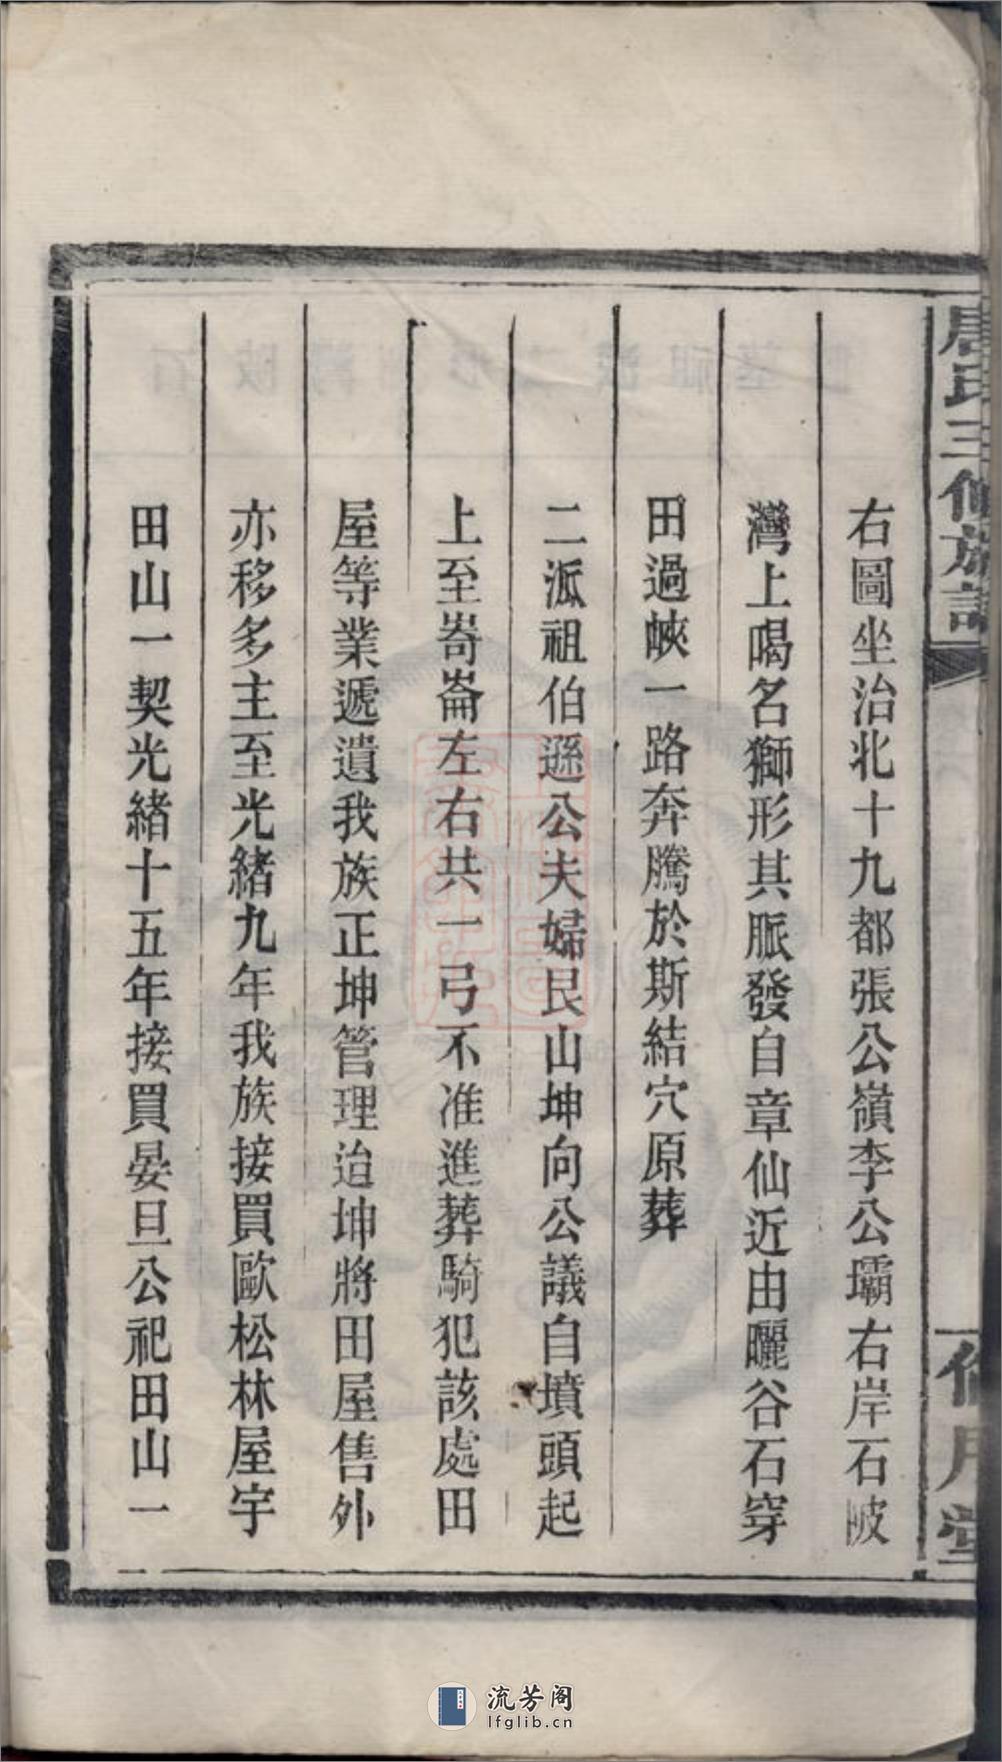 唐氏三修族譜
右圖坐治北十九都張公嶺李公壩右岸石陂
灣上喝名獅形其脈發自章仙近由曬谷石穿
田過峽一路奔騰於斯結穴原葬
二派祖伯遜公夫婦艮山坤向公議自墳頭起
上至崎崙左右共一弓不准進葬騎犯該處田
屋等業遞遺我族正坤管理迨坤將田屋售外
亦移多主至光緒九年我族接買歐松林屋宇
田山一契光緒十五年接買晏旦公祀田山一
流芳阁
lfglib.cn